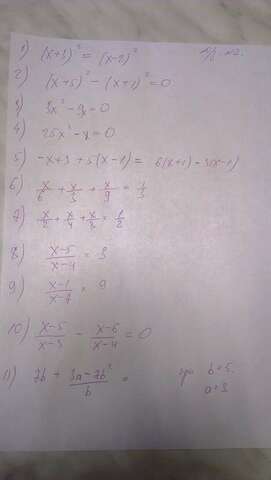 1) (x+3)² = (x-2)²
2) (x+5)² - (x+1)² = 0
3) 3x² - 9x = 0
4) 25x² - x = 0
5) -x+3+5(x-1) = 6(x+1)-3(x-1)
6) x/6 + x/3 + x/9 = 1/3
7) x/2 + x/4 + x/8 = 1/2
8) (x-5)/(x-4) = 3
9) (x-1)/(x-7) = 9
10) (x-5)/(x-3) - (x-6)/(x-4) = 0
11) 7b + (3a-7b²)/b = при b=5.
a=3